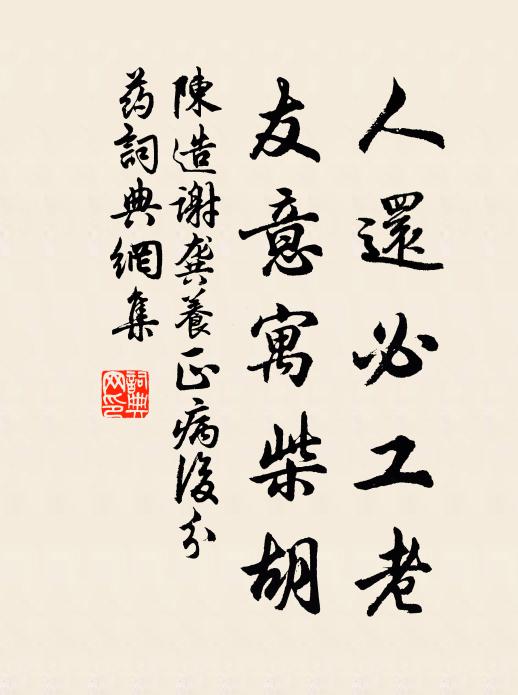 人還必工老
友意寓柴胡
陳造謝龔養正病後分
药詞典網集
詞典网印